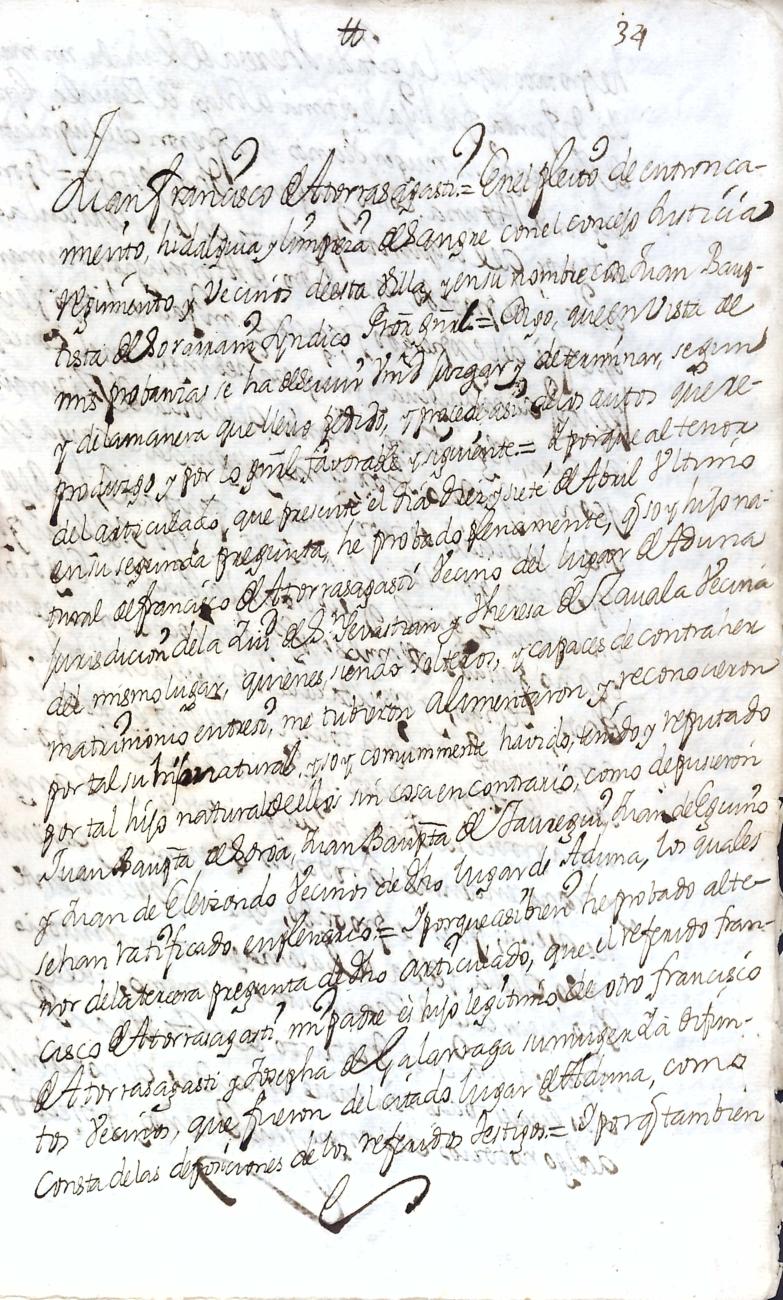 tt. 34
Juan francisco de Atorrasagasti = En el pleito de entronca-
miento, hidalguia y limpieza de sangre con el concejo Justicia
regimiento y Vecinos de esta Villa, y en su nombre con Juan Bap-
tista de Soraiain Sindico Pror gñral = Digo, que en Vista de
mis probanzas se ha de servir Vmd juzgar y determinar, segun
y de la manera que llevo pedido, y procede assi de los autos que re-
produzgo y por lo gñral favorable y siguiente = Y porque al tenor
del articulado, que presente el dia diez y siete de Abril Ultimo
en su segunda pregunta, he probado plenamente, q soy hijo na-
tural de francisco de Atorrasagasti Vecino del lugar de Aduna
Jurisdicion de la Ziud de Sn Sevastian y Theresa de Zavala Vecina
del mismo lugar, quienes siendo solteros, y capaces de contraher
matrimonio entre si, me tubieron alimentaron y reconocieron
por tal su hijo natural, y soy comunmente havido, tenido y reputado
por tal hijo natural de ellos sin cosa en contrario, como depusieron
Juan Bapta de Soroa, Juan Baupta de Jauregui, Juan de Eguino
y Juan de Elizondo Vecinos de dho lugar de Aduna, los quales
se han ratificado en plenario = Y porque assi bien he probado al te-
nor de la tercera pregunta de dho articulado, que el referido fran-
cisco de Atorrasagasti mi padre es hijo legitimo de otro francisco
de Atorrasagasti y Josepha de Galarraga su muger ya difun-
tos Vecinos, que fueron del citado lugar de Aduna, como
Consta de las deposiciones de los referidos testigos = Y porq tambien